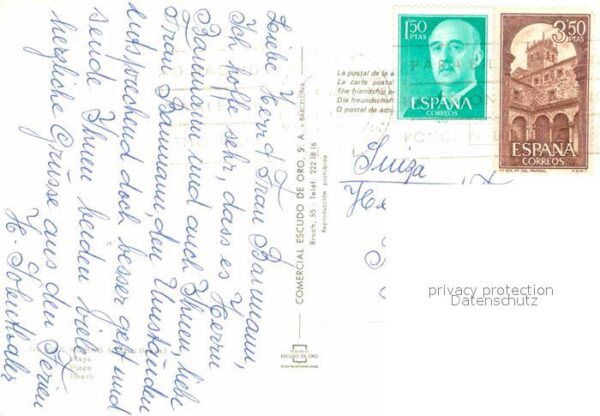 Liebe Herr & Frau Baumann,
Ich hoffe sehr, dass es Ihnen,
Baumann und auch Ihnen, liebe
Frau Baumann, den Umständen
entsprechend doch besser geht und
sende Ihnen beiden viele
herzliche Grüsse aus den Ferien
H.
Playa
Plage
Beach
COMERCIAL ESCUDO DE ORO, S. A. - BARCELONA
Bruch, 55 - Teléf. 222 18 16
Reproducción prohibida
POSTALES
ESCUDO DE ORO
La postal de la a
La carte postal
The friendship
Die freundschaft
O postal de am
1'50
PTAS
ESPAÑA
CORREOS
3,50
PTAS
ESPAÑA
CORREOS
Suiza
privacy protection
Datenschutz